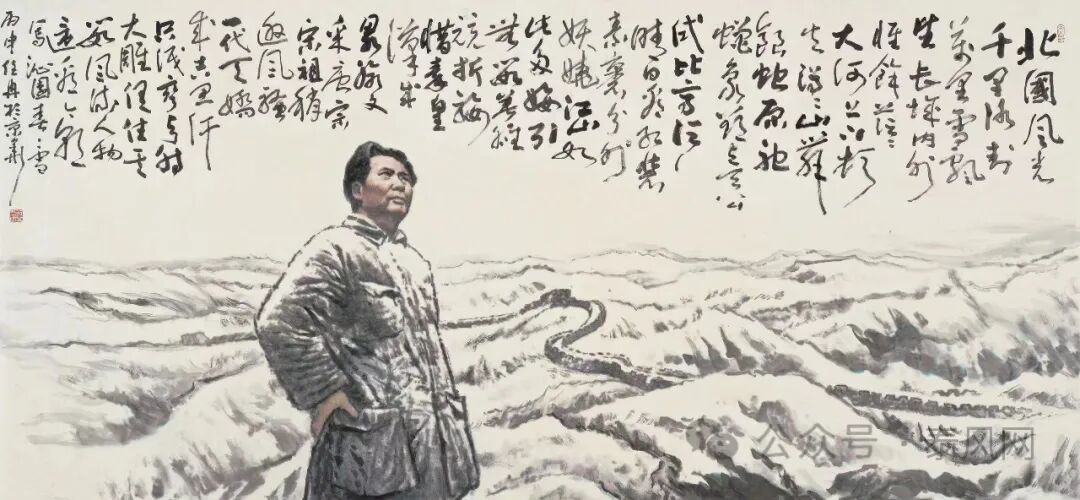 北國風光
千里冰封
萬里雪飄
望長城內外
惟餘莽莽
大河上下頓
失滔滔山舞
銀蛇原馳
蠟象欲與天公
試比高須
晴日看紅裝
素裹分外
妖嬈江山如
此多嬌引
無數英雄
競折腰
惜秦皇
漢武
略輸文
采唐宗
宋祖稍
遜風騷
一代天驕
成吉思汗
只識彎弓射
大雕俱往矣
數風流人物
還看今朝
寫沁園春雪
丙申 於京華
公众号 · 风网